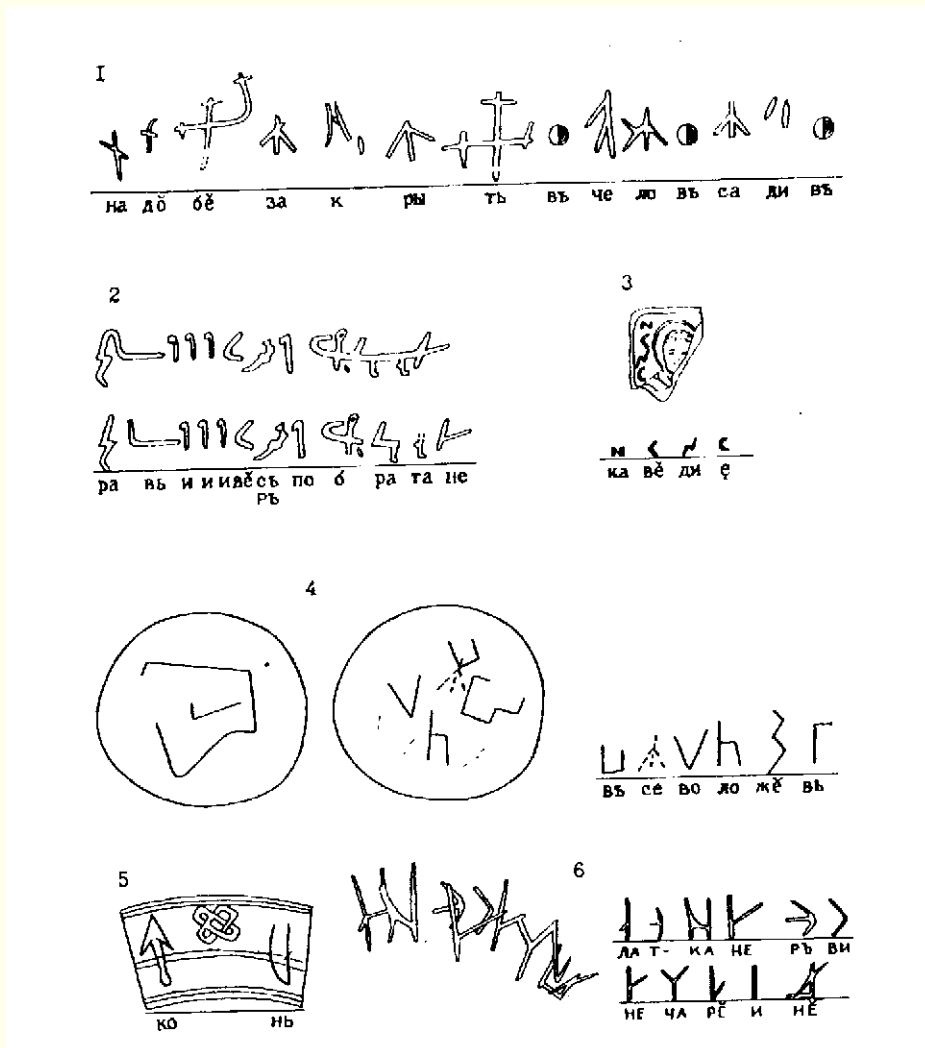 I
на дŏ бě за к ры ть въ че ло въ са ди въ
2
3
ра вь и и ивěсъ по б ра та не
РЬ
ка вě ди ę
4
въ се во ло жě вь
5
6
ко нь
ЛА Т- КА НЕ РЬ ВИ
НЕ ЧА РĚ И НĚ